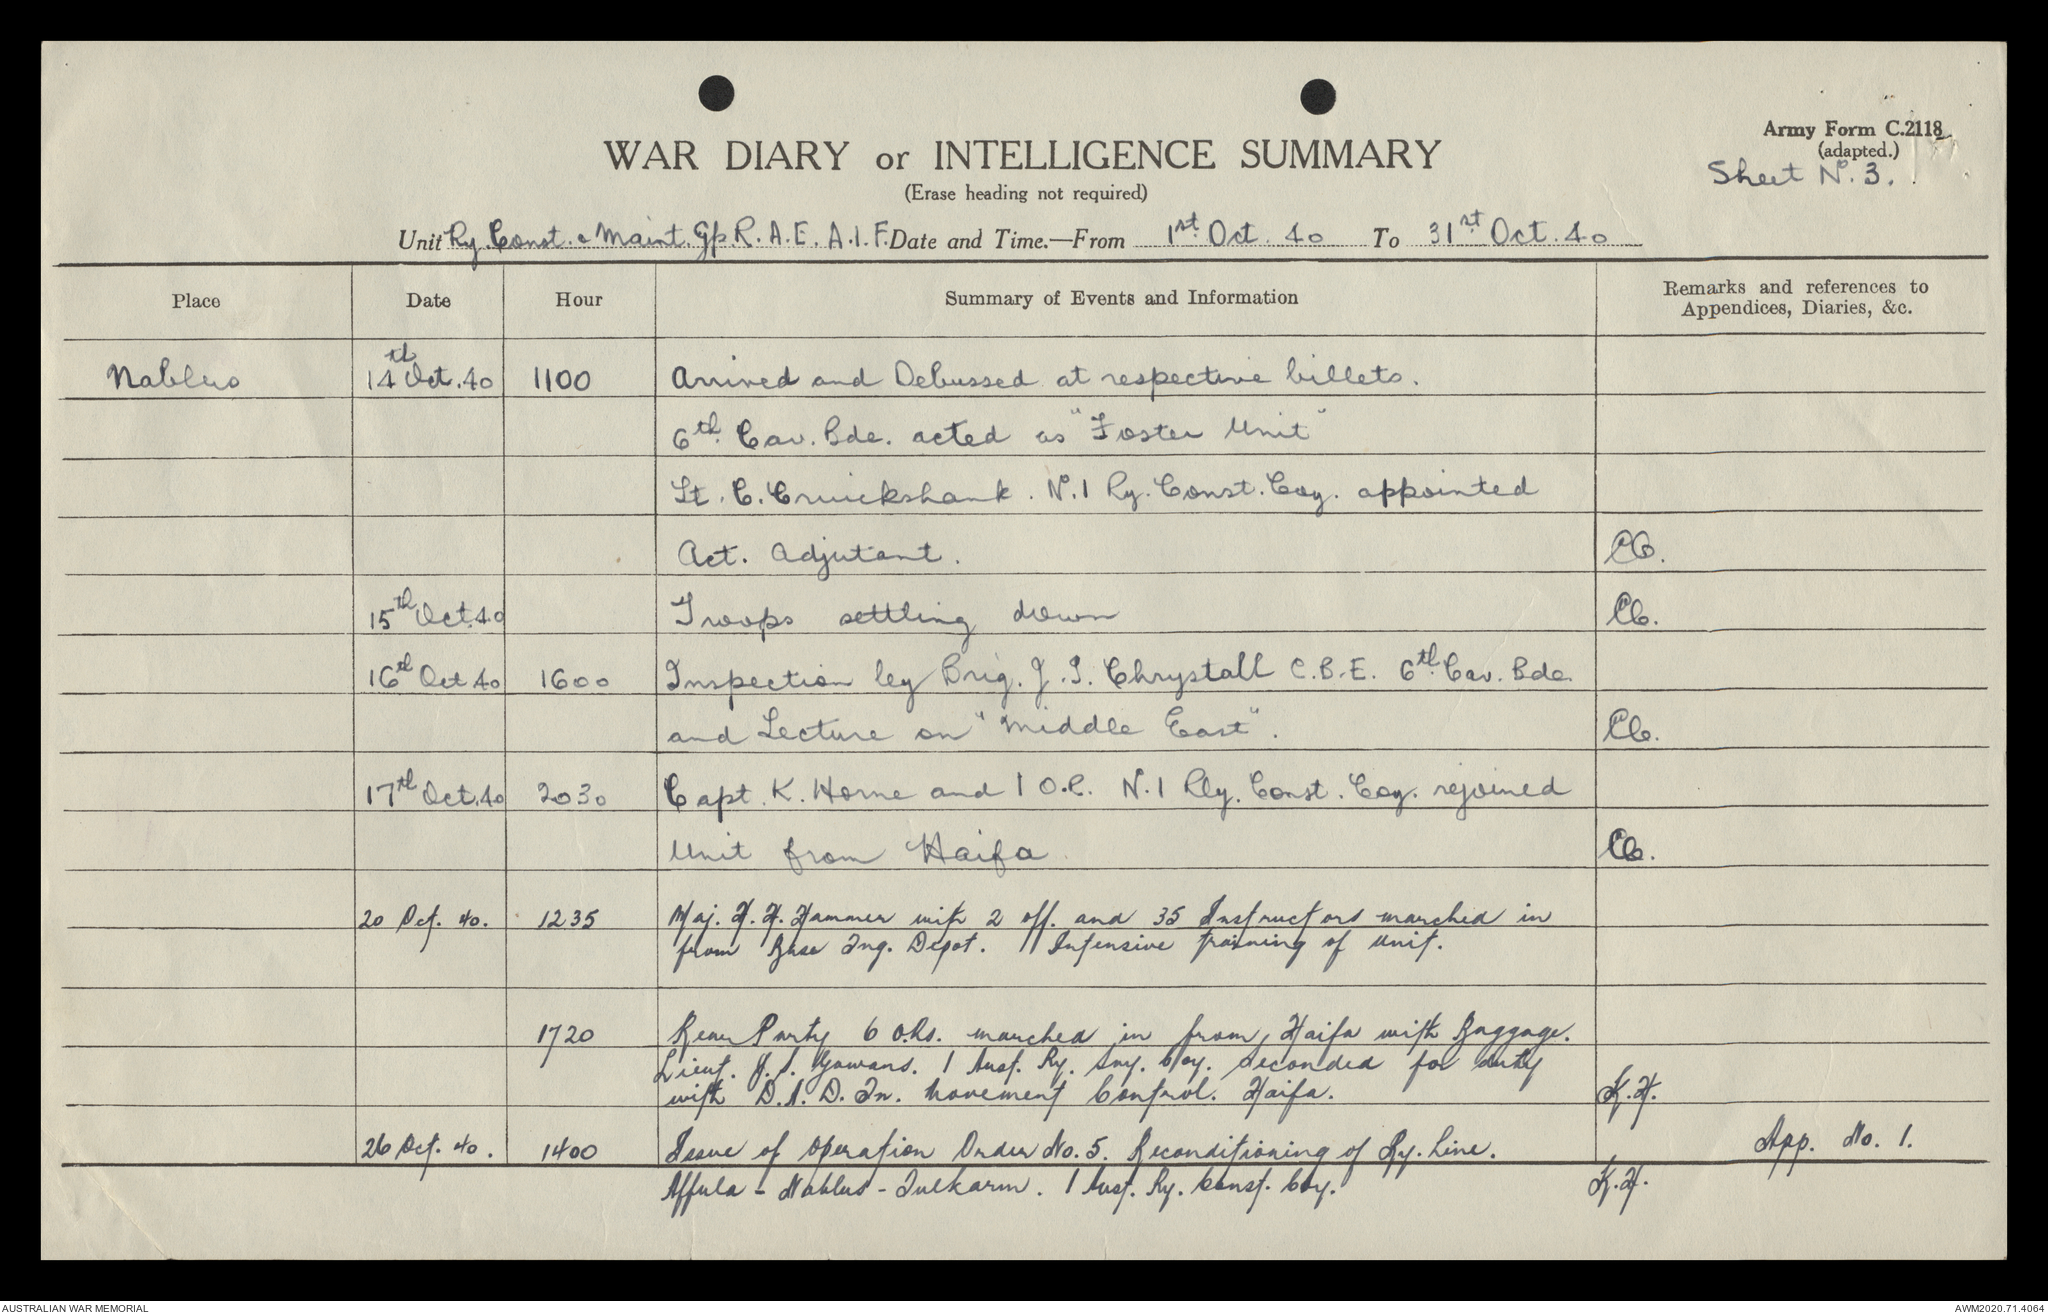 Army Form C.2118
(adapted.)
Sheet No. 3.
WAR DIARY or INTELLIGENCE SUMMARY
(Erase heading not required)
Unit Ry. Const. & Maint. Gp. R.A.E. A.I.F. Date and Time.—From 1st Oct. 40 To 31st Oct. 40
Place Date Hour Summary of Events and Information Remarks and references to
Appendices, Diaries, &c.
Nablus 14th Oct. 40 1100 Arrived and Debussed at respective billets.
6th Cav. Bde. acted as "Foster Unit"
Lt. C. Cruickshank. No. 1 Ry. Const. Coy. appointed
Act. Adjutant. CC.
15th Oct. 40 Troops settling down CC.
16th Oct 40 1600 Inspection by Brig. J. I. Chrystall C.B.E. 6th Cav. Bde.
and Lecture on "Middle East". CC.
17th Oct. 40 2030 Capt. K. Horne and 1 O.R. No. 1 Rly. Const. Coy. rejoined
Unit from Haifa. CC.
20 Oct. 40. 1235 Maj. H. H. Hammer with 2 off. and 35 Instructors marched in
from Base Trg. Depot. Intensive training of Unit.
1720 Rear Party 6 O.Rs. marched in from Haifa with Baggage.
Lieut. J. S. Gowans. 1 Aust. Ry. Svy. Coy. seconded for duty
with D.A.D. Tn. Movement Control. Haifa. K.H.
26 Oct. 40. 1400 Issue of Operation Order No. 5. Reconditioning of Ry. Line. App. No. 1.
Affula - Nablus - Tulkarm. 1 Aust. Ry. Const. Coy. K.H.
AUSTRALIAN WAR MEMORIAL AWM2020.71.4064